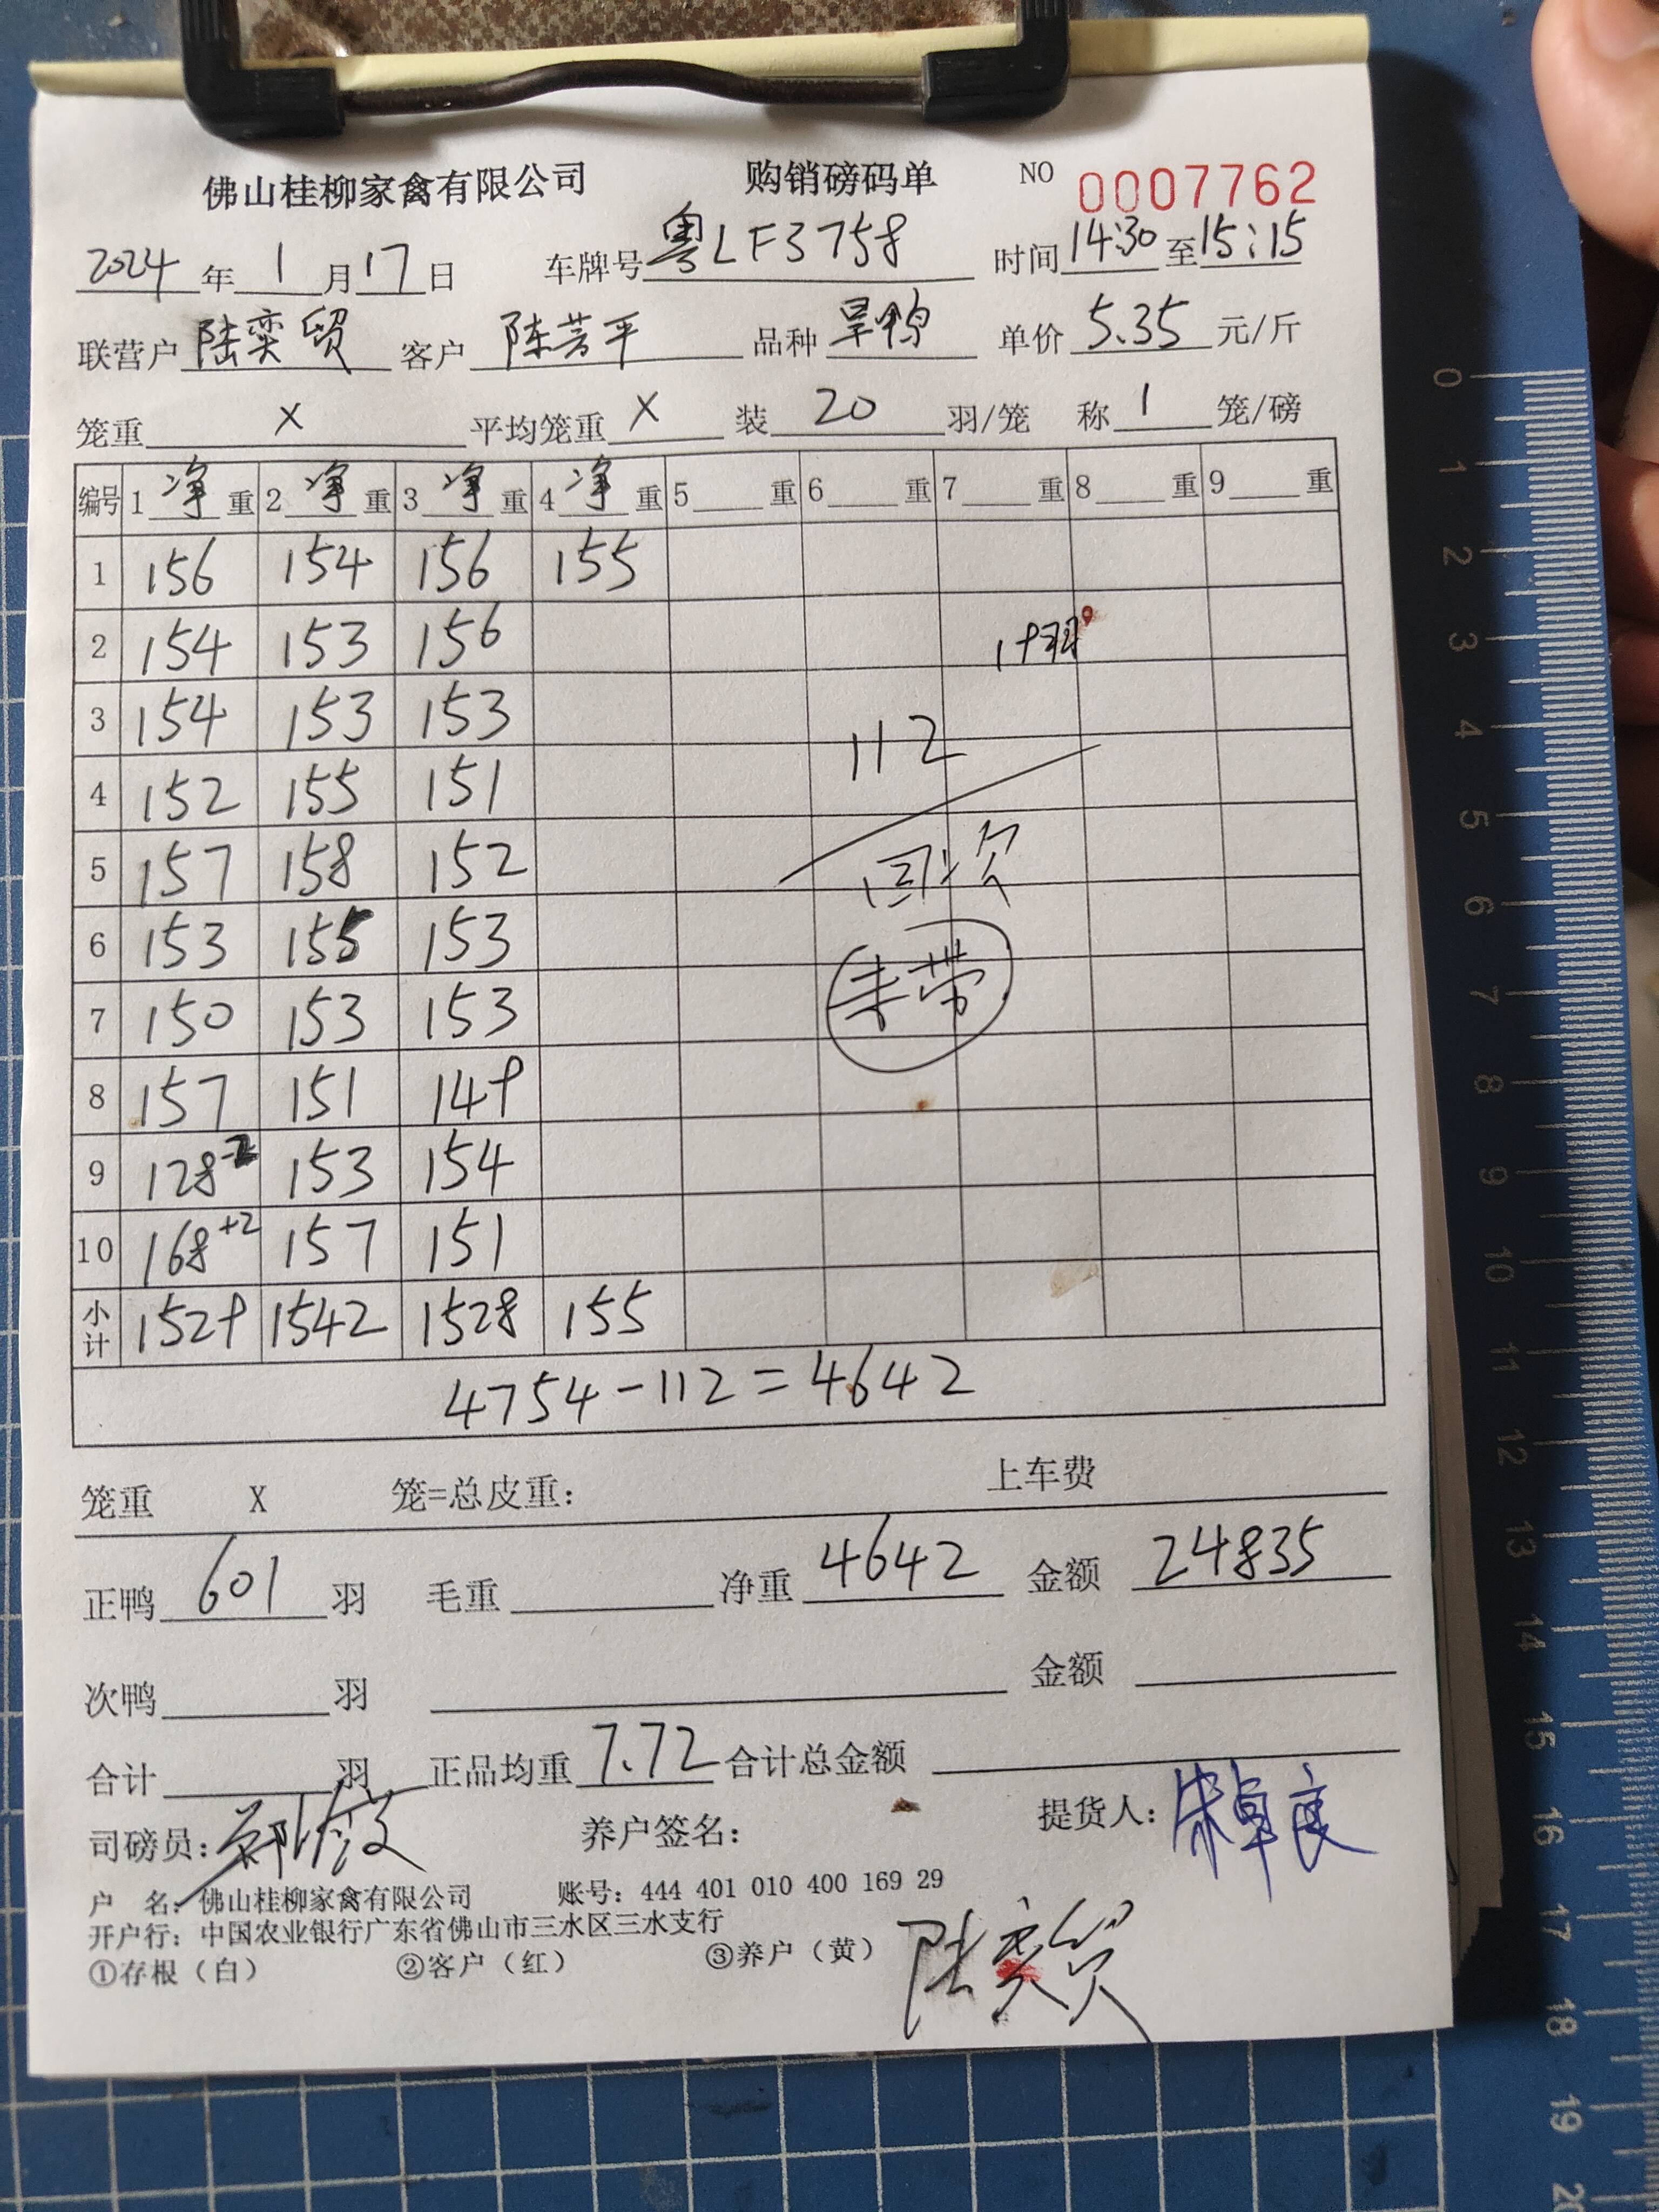 佛山桂柳家禽有限公司 购销磅码单 NO 0007762
2024 年 1 月 17 日 车牌号 粤LF3758 时间 14:30 至 15:15
联营户 陆奕贸 客户 陈芳平 品种 旱鸭 单价 5.35 元/斤
笼重 X 平均笼重 X 装 20 羽/笼 称 1 笼/磅
编号 1 净 重 2 净 重 3 净 重 4 净 重 5 重 6 重 7 重 8 重 9 重
1 156 154 156 155
2 154 153 156 19羽
3 154 153 153 112
4 152 155 151
5 157 158 152 回次
6 153 155 153
7 150 153 153 未带
8 157 151 149
9 128-2 153 154
10 168+2 157 151
小计 1529 1542 1528 155
4754-112=4642
笼重 X 笼=总皮重: 上车费
正鸭 601 羽 毛重 净重 4642 金额 24835
次鸭 羽 金额
合计 羽 正品均重 7.72 合计总金额
司磅员: 养户签名: 提货人:
户 名: 佛山桂柳家禽有限公司 账号: 444 401 010 400 169 29
开户行: 中国农业银行广东省佛山市三水区三水支行
①存根(白) ②客户(红) ③养户(黄) 陆奕贸
0
1
2
3
4
5
6
7
8
9
10
11
12
13
14
15
16
17
18
19
20